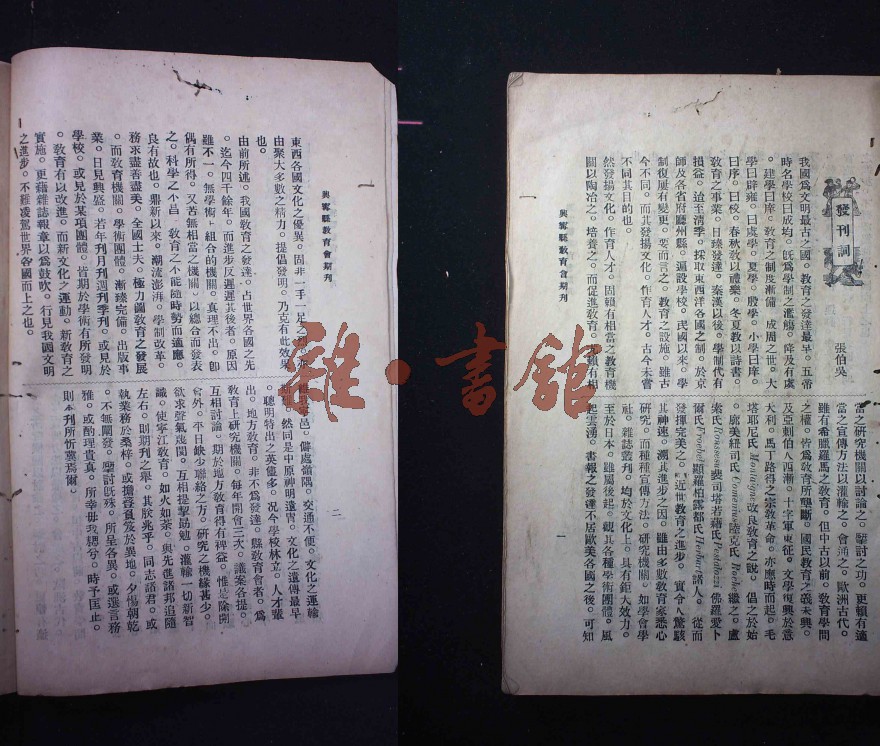 發刊詞
張伯吳
我國為文明最古之國。敎育之發達最早。五帝
時名學校曰成均。旣為學制之濫觴。降及有虞
。建學曰庠。敎育之制度漸備。成周之世。大
學曰辟雍。曰虞學。夏學。殷學。小學曰庠。
曰序。曰校。春秋敎以禮樂。冬夏敎以詩書。
敎育之事業。日臻發達。秦漢以後。學制代有
損益。迨至清季。採取東西洋各國之制。於京
師及各省府廳州縣。遍設學校。民國以來。學
制復屢有變更。要而言之。敎育之設施。雖古
今不同。而其發揚文化。作育人才。古今未嘗
不同其目的也。
然發揚文化。作育人才。固賴有相當之敎育機
關以陶冶之。培養之。而促進敎育。尤賴有相
當之研究機關以討論之。討之功。更賴有適
當之宣傳方法以灌輸之。會通之。歐洲古代。
雖有希臘羅馬之敎育。但中古以前。敎育學問
之權。皆為敎育所壟斷。國民敎育之義未興。
及亞刺伯人西漸。十字軍東征。文學復興於意
大利。馬丁路得之宗敎革命。亦應時而起。毛
塔耶尼氏Montaigne改良敎育之說。倡之於始
。廓美紐司氏Comenius陸克氏Rocke繼之。盧
索氏Rousseau裴司塔若藉氏Pestalozzi佛羅愛卜
爾氏Froebel顯羅柏露都氏Herbart諸人。從而
發揮完美之。近世敎育之進步。實令人驚駭
其神速。溯其進步之因。雖由多數敎育家悉心
研究。而種種宣傳方法。研究機關。如學會學
社。雜誌叢刊。均於文化上。具有鉅大效力。
至於日本。雖屬後起。觀其各種學術團體。風
起雲湧。書報之發達不居歐美各國之後。可知
興寧縣敎育會期刊
一
興寧縣敎育會期刊
二
東西各國文化之優異。固非一手一足之烈。亦
由衆大多數之精力。提倡發明。乃克有此效果
也。
由前所述。我國敎育之發達。占世界各國之先
。迄今四千餘年。而進步反遲遲其後者。原因
雖不一。無學術組合的機關。真理不出。卽
偶有所得。又苦無相當之機關。以總合而發表
之。科學之不昌。敎育之不能隨時勢而適應。
良有故也。鼎新以來。潮流澎湃。學制改革。
務求盡善盡美。全國士夫。極力圖敎育之發展
。而敎育機關。學術團體。漸臻完備。出版事
業。日見興盛。若年刊月刊週刊季刊。或見於
學校。或見於某項團體。皆期於學術有所發明
。敎育有以改進。而新文化之運動。新敎育之
實施。更藉雜誌報章以為鼓吹。行見我國文明
之進步。不難凌駕世界各國而上之也。
邑。僻處嶺隅。交通不便。文化之運輸
。然同是中原神明遺冑。文化之遺傳最早
。聰明特出之英儘多。況今學校林立。人才輩
出。地方敎育。非不為發達。縣敎育會者。為
敎育上研究機關。每年開會二三次。議案各提。
互相討論。期於地方敎育得有裨益。惟是除開
會外。平日缺少聯絡之方。研究之機緣甚少。
欲求聲氣幾閡。互相提挈勗勉。灌輸一切新智
識。使寧江敎育。如火如荼。與先進諸邦追隨
左右。則期刊之舉。其朕兆乎。同志諸君。或
執業務於桑梓。或擔簦負笈於異地。夕惕朝乾
。不無闡發。討旣殊。所呈各異。或選言務
雅。或酌理貴真。所幸毋我閟兮。時予匡止。
則本刊所忻慕焉爾。
雅·書館